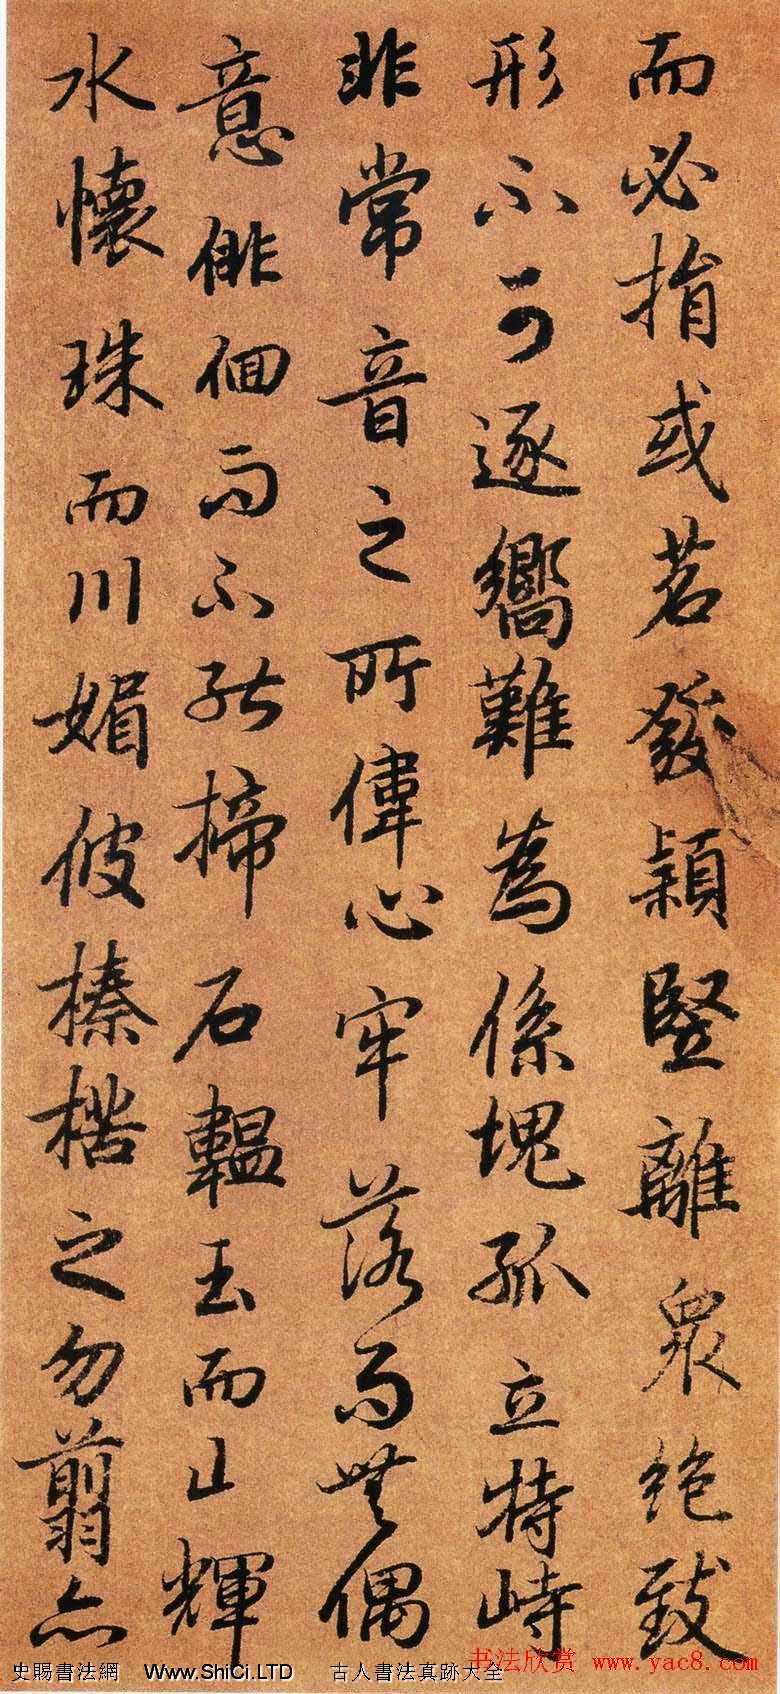 而必揩或苕發穎竪離衆絶致
形不可逐嚮難為係塊孤立特峙
非常音之所偉心牢落而無偶
意徘徊而不能揥石韞玉而山輝
水懷珠而川媚彼榛楛之勿翦亦
史賜書法網 Www.ShiCi.LTD 古人書法真跡大全
书法欣赏 www.yac8.com